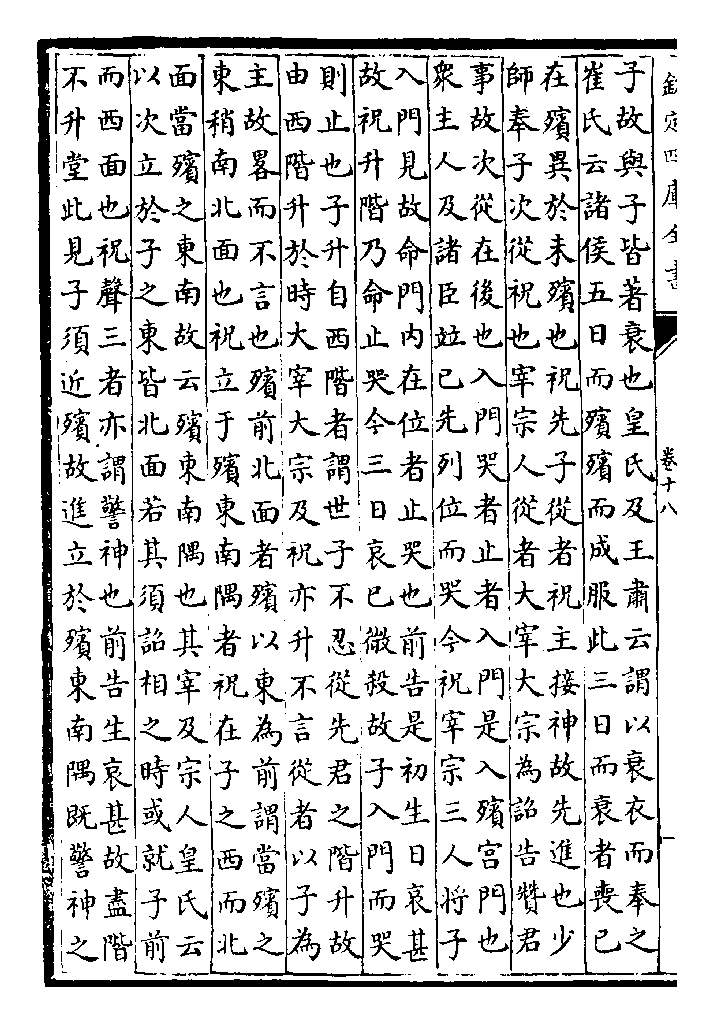 欽定四庫全書
卷十八
子故與子皆著衰也皇氏及王肅云謂以衰衣而奉之
崔氏云諸侯五日而殯殯而成服此三日而衰者喪已
在殯異於未殯也祝先子從者祝主接神故先進也少
師奉子次從祝也宰宗人從者大宰大宗為詔告贊君
事故次從在後也入門哭者止者入門是入殯宮門也
衆主人及諸臣竝已先列位而哭今祝宰宗三人将子
入門見故命門内在位者止哭也前告是初生日哀甚
故祝升階乃命止哭今三日哀已微殺故子入門而哭
則止也子升自西階者謂世子不忍從先君之階升故
由西階升於時大宰大宗及祝亦升不言從者以子為
主故畧而不言也殯前北面者殯以東為前謂當殯之
東稍南北面也祝立于殯東南隅者祝在子之西而北
面當殯之東南故云殯東南隅也其宰及宗人皇氏云
以次立於子之東皆北面若其須詔相之時或就子前
而西面也祝聲三者亦謂警神也前告生哀甚故盡階
不升堂此見子須近殯故進立於殯東南隅既警神之